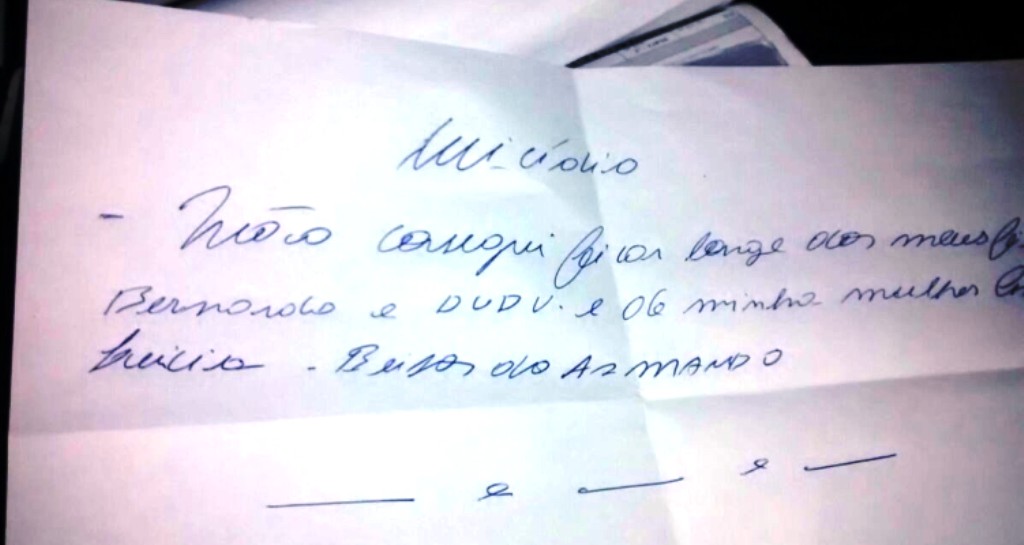 Suicídio
- Não consegui ficar longe dos meus
Bernardo e DUDU. e de minha mulher
Lucia - Beijos do ARMANDO
e e